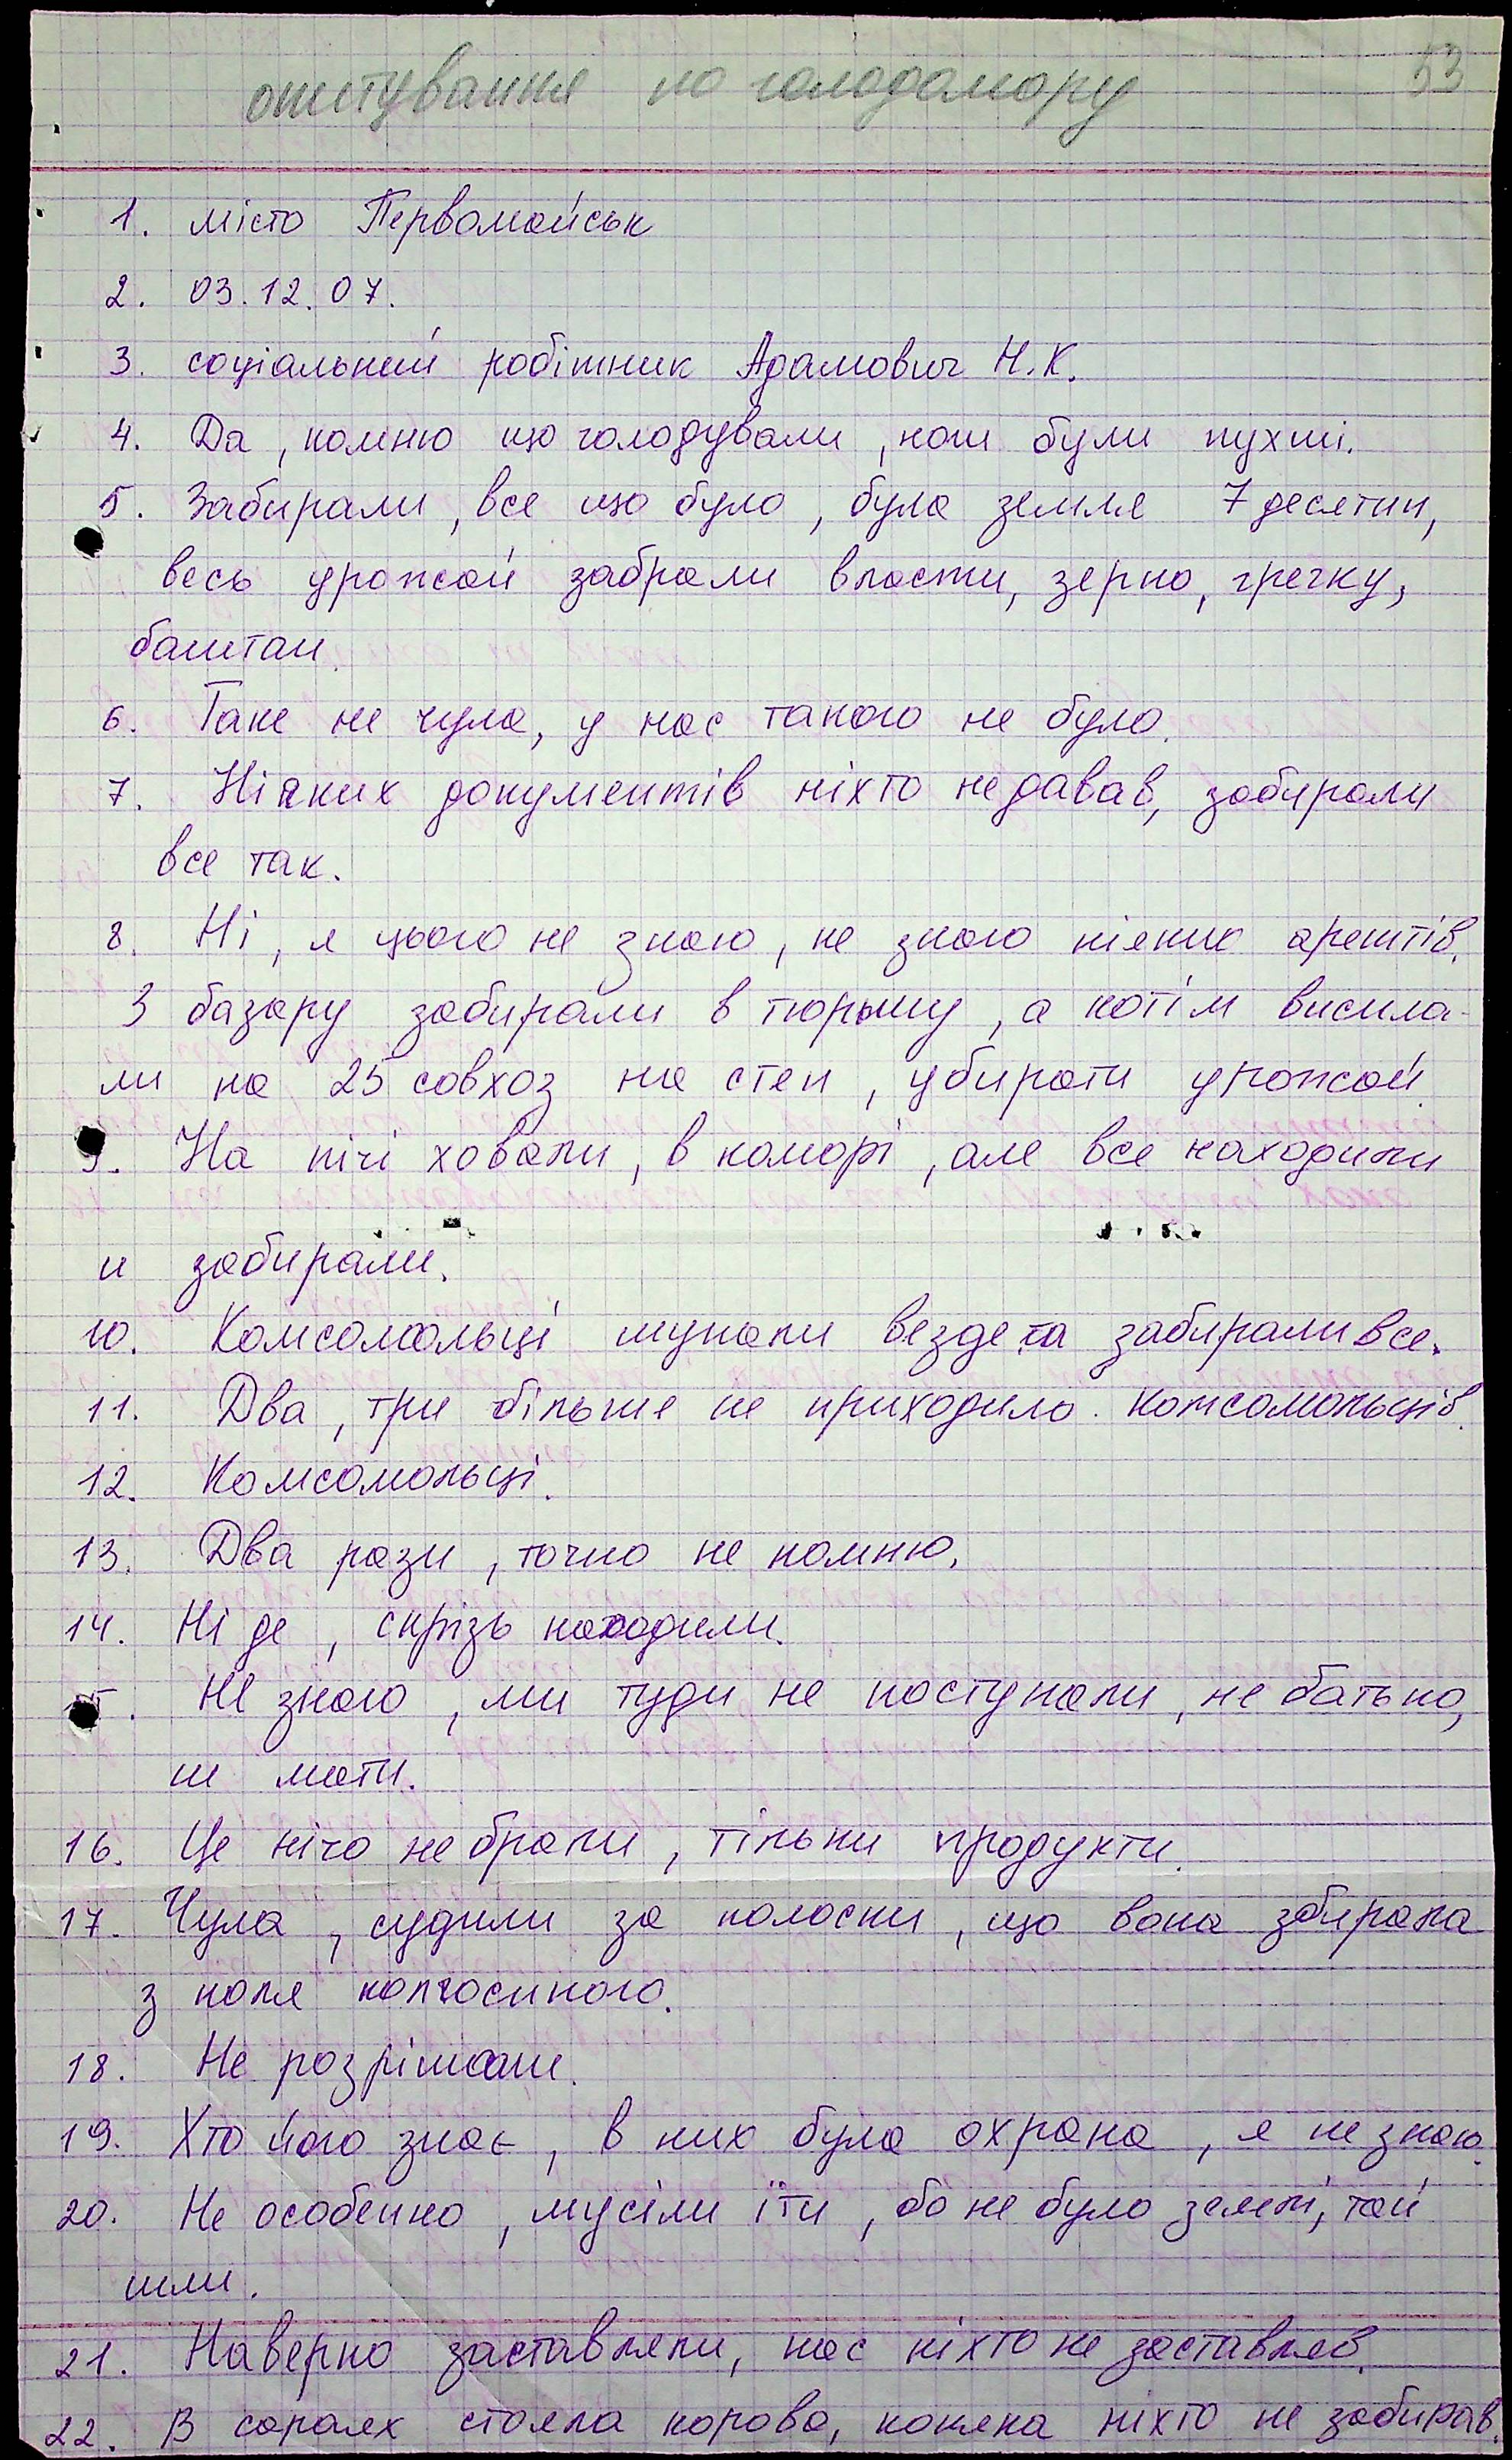 опитування по голодомору
53
1. місто Первомайськ
2. 03.12.07.
3. соціальний робітник Адамович Н.К.
4. Да, помню що голодували, ноги були пухлі.
5. Забирали, все що було, була земля 7 десятин,
весь урожай забрали власти, зерно, гречку,
баштан.
6. Таке не чула, у нас такого не було.
7. Ніяких документів ніхто не давав, забирали
все так.
8. Ні, я цього не знаю, не знаю ніяких арештів.
З базару забирали в тюрьму, а потім висила-
ли на 25 совхоз на степ, убирати урожай.
9. На пічі ховали, в коморі, але все находили
и забирали.
10. Комсомольці шукали везде та забирали все.
11. Два, три більше не приходило комсомольців.
12. Комсомольці.
13. Два рази, точно не помню.
14. Ні де, скрізь находили.
15. Не знаю, ми туди не поступали, не батько,
ні мати.
16. Це нічо не брали, тільки продукти.
17. Чула, судили за колоски, що вона збирала
з поля колгоспного.
18. Не розрішали.
19. Хто його знає, в них була охрана, я не знаю.
20. Не особенно, мусіли іти, бо не було землі, тай
шли.
21. Наверно заставляли, нас ніхто не заставляв.
22. В сараях стояла корова, коняка ніхто не забирав.